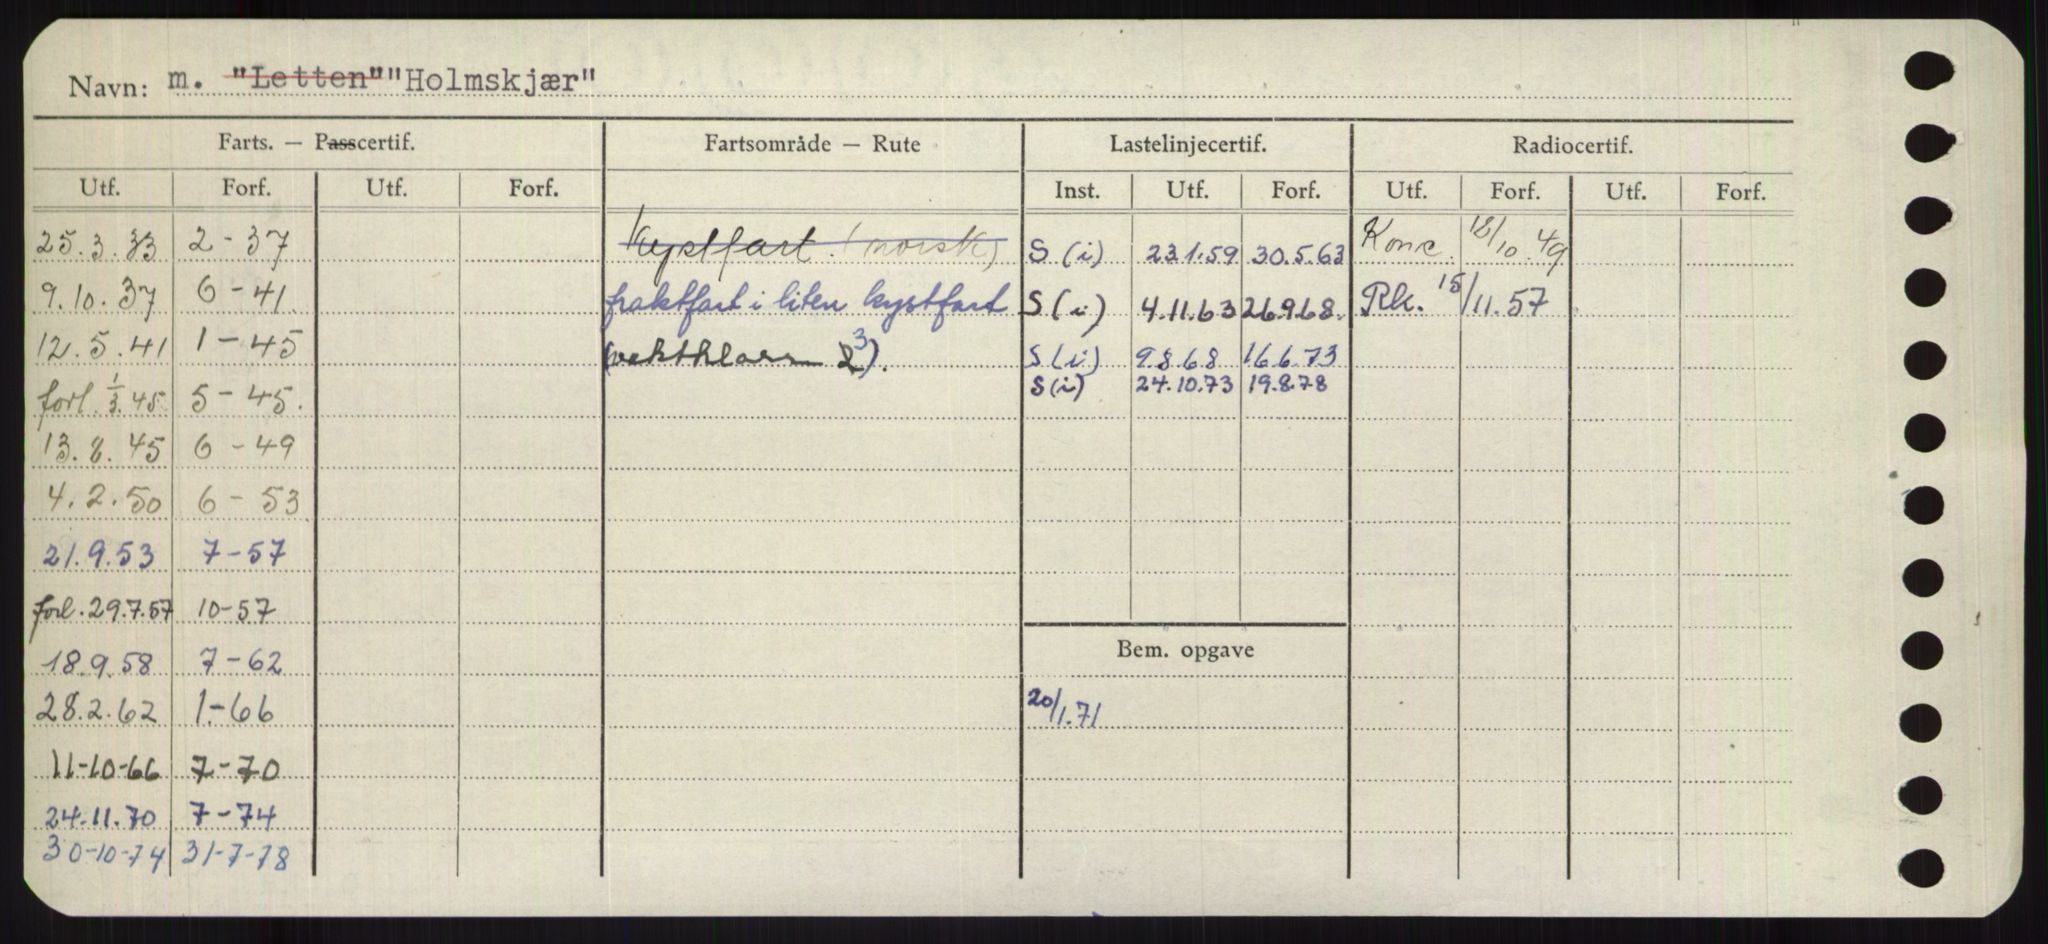 Navn: m. "Letten" "Holmskjær"
Farts. — Passcertif. Fartsområde — Rute Lastelinjecertif. Radiocertif.
Utf. Forf. Utf. Forf. Inst. Utf. Forf. Utf. Forf. Utf. Forf.
25.3.33 2-37 Kystfart (norsk) S (i) 23.1.59 30.5.63 Konc. 12/10.49
9.10.37 6-41. fraktfart i liten kystfart S (i) 4.11.63 26.9.68. Rk. 15/11.57
12.5.41 1-45 (vektklasse 2 3). S (i) 9.8.68 16.6.73
S (i) 24.10.73 19.8.78
forl. 1/3.45 5-45.
13.8.45 6-49
4.2.50 6-53
21.9.53 7-57
forl. 29.7.57 10-57
18.9.58 7-62 Bem. opgave
28.2.62 1-66 20/1.71
11-10-66 7-70
24.11.70 7-74
30-10-74 31-7-78